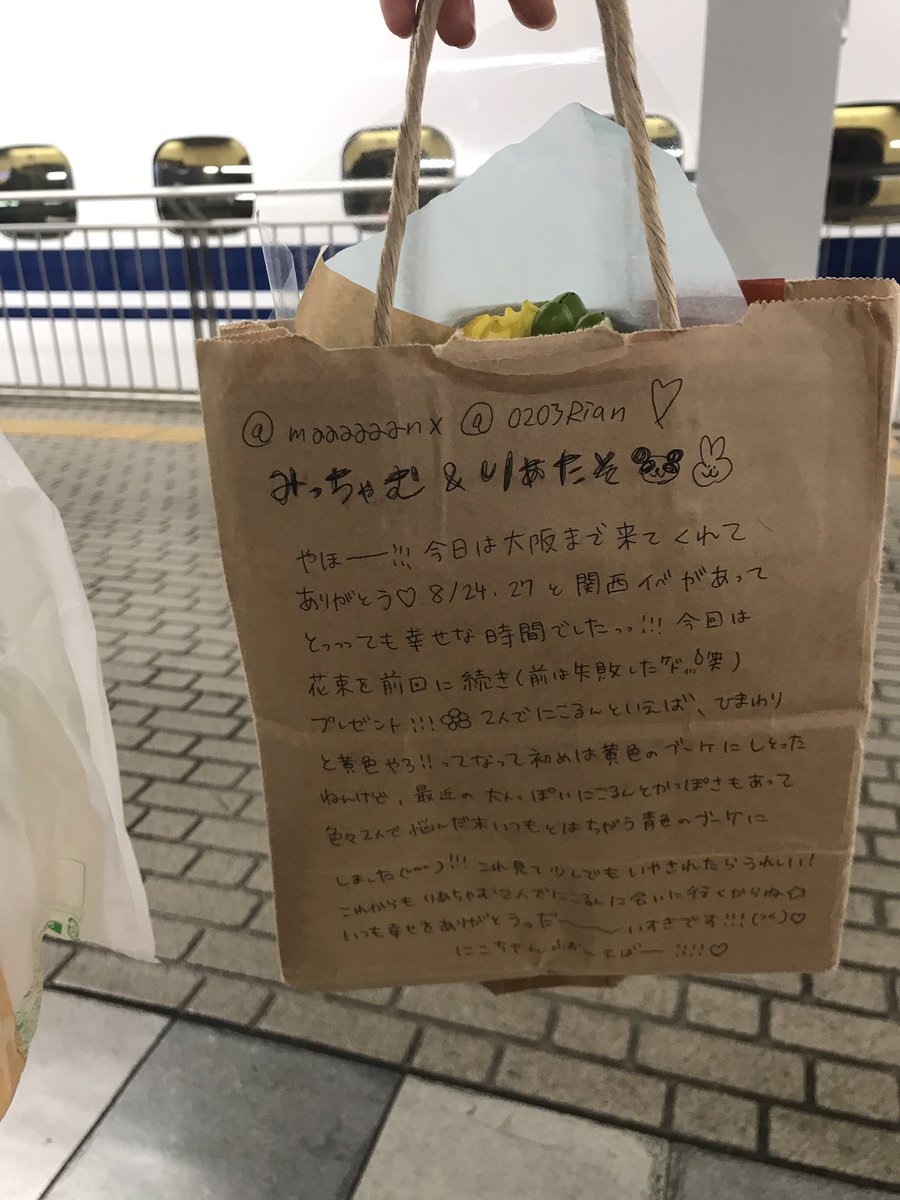 @ maaaaaanx @ 0203Rian ♡
みっちゃむ & りあたそ
やほーー!!! 今日は大阪まで来てくれて
ありがとう♡ 8/24.27 と関西イベがあって
とっっっても幸せな時間でしたっっ!!! 今回は
花束を前回に続き(前は失敗したケド笑)
プレゼント!!! 2人でにこるんといえば、ひまわり
と黄色やろ!! ってなって初めは黄色のブーケにしとった
ねんけど、最近の大人っぽいにこるんとかっぽさもあって
色々2人で悩んだ末いつもとはちがう青色のブーケに
しましたね!!! これ見て少しでもいやされたらうれしい!
これからもりあちゃむ2人でにこるんに会いに行くからね☆
いつも幸せをありがとう。だ〜〜〜いすきです!!! (><)♡
にこちゃん ふぉーえばー !!!!♡